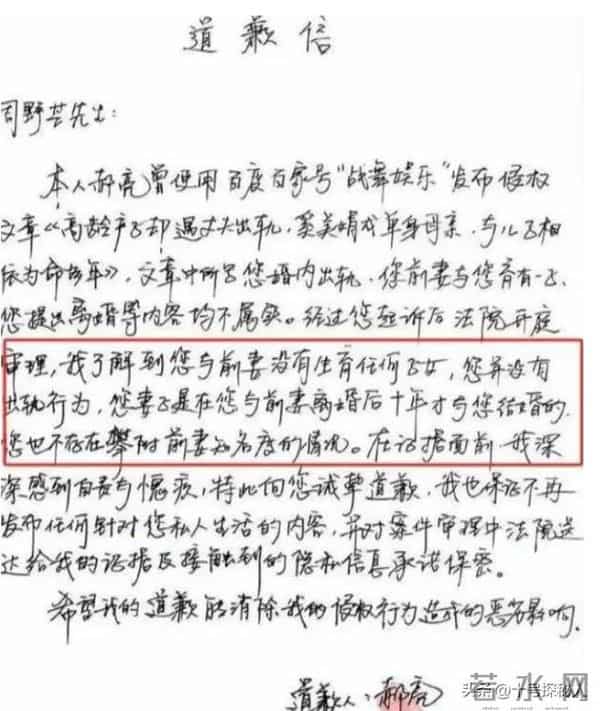 道歉信
司野芒先生:
本人郝亮曾使用百度百家号"战舞娱乐"发布侵权
文章《高龄产子却遇丈夫出轨,奚美娟成单身母亲,与儿子相
依为命多年》,文章中所写您婚内出轨,您前妻与您育有一子,
您提出离婚等内容均不属实。经过您起诉后法院开庭
审理,我了解到您与前妻没有生育任何子女,您并没有
出轨行为,您妻子是在您与前妻离婚后十年才与您结婚的,
您也不存在攀附前妻知名度的情况。在证据面前,我深
深感到自责与愧疚,特此向您诚挚道歉,我也保证不再
发布任何针对您私人生活的内容,并对案件审理中法院送
达给我的证据及接触到的隐私信息承诺保密。
希望我的道歉能消除我的侵权行为造成的恶劣影响。
道歉人:郝亮
头条@十号探秘人
若水网